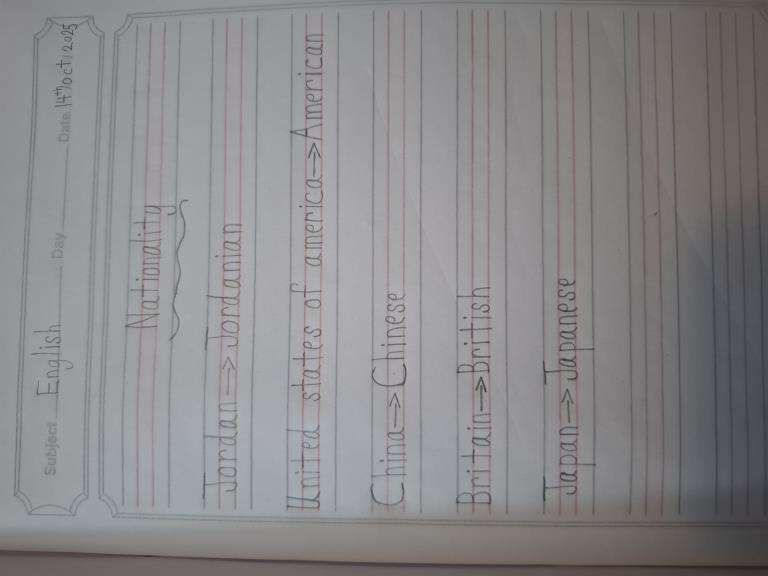 Subject English Day Date 14th/Oct/2025
Nationality
Jordan -> Jordanian
United states of america -> American
China -> Chinese
Britain -> British
Japan -> Japanese